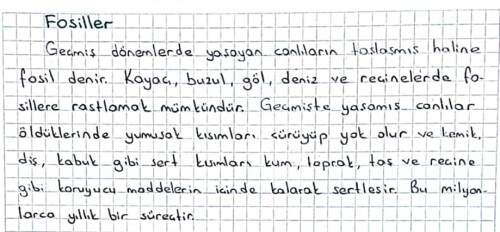 Fosiller
Geçmiş dönemlerde yaşayan canlıların taşlaşmış haline
fosil denir. Kayaç, buzul, göl, deniz ve reçinelerde fo-
sillere rastlamak mümkündür. Geçmişte yaşamış canlılar
öldüklerinde yumuşak kısımları çürüyüp yok olur ve kemik,
diş, kabuk gibi sert kısımları kum, toprak, taş ve reçine
gibi koruyucu maddelerin içinde kalarak sertleşir. Bu milyon-
larca yıllık bir süreçtir.